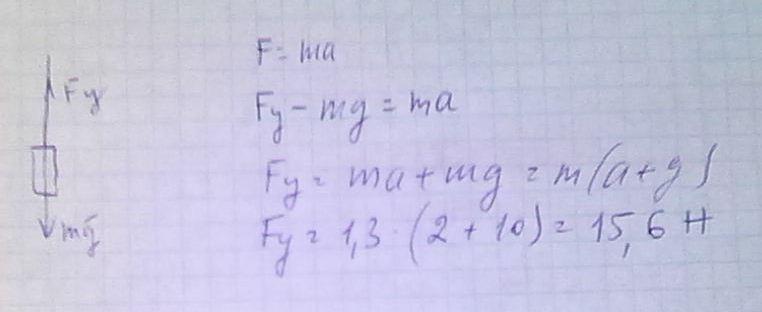 F = ma
Fy
Fy - mg = ma
Fy = ma + mg = m(a + g)
mg
Fy = 1,3 · (2 + 10) = 15,6 Н